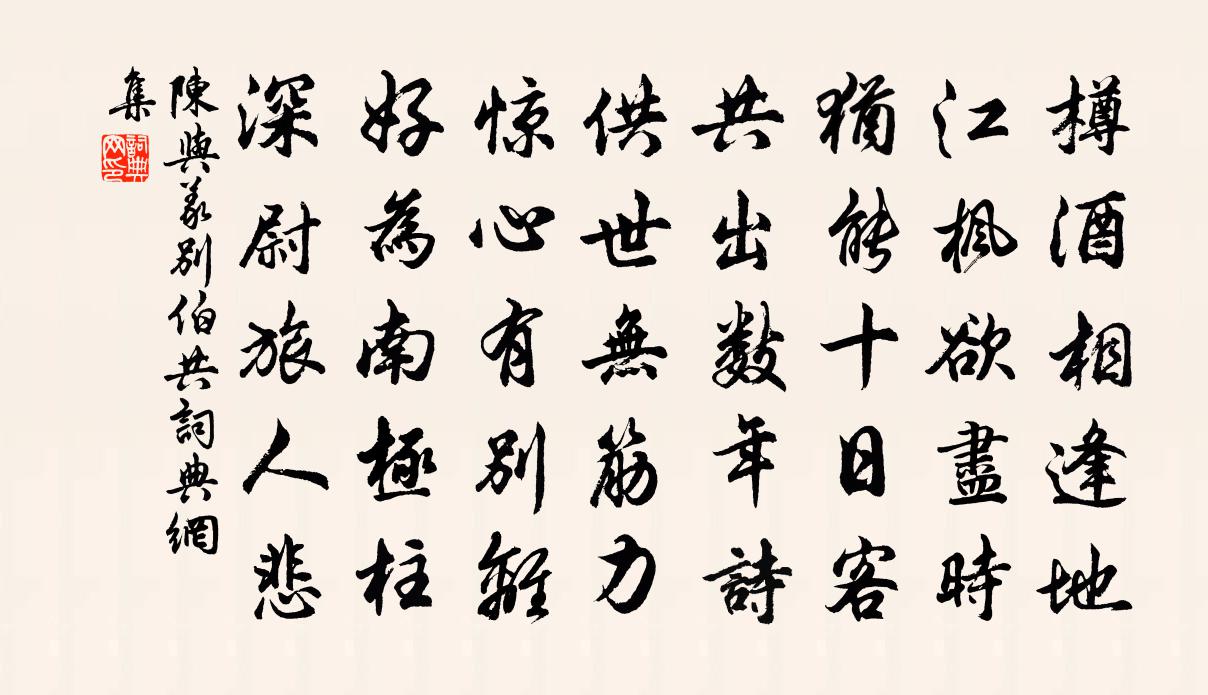 樽酒相逢地
江楓欲盡時
猶能十日客
共出數年詩
供世無筋力
惊心有別離
好為南極柱
深尉旅人悲
陳與義別伯共詞典網
集
詞典
网印